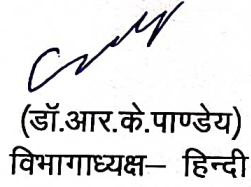 (डॉ.आर.के.पाण्डेय)
विभागाध्यक्ष– हिन्दी